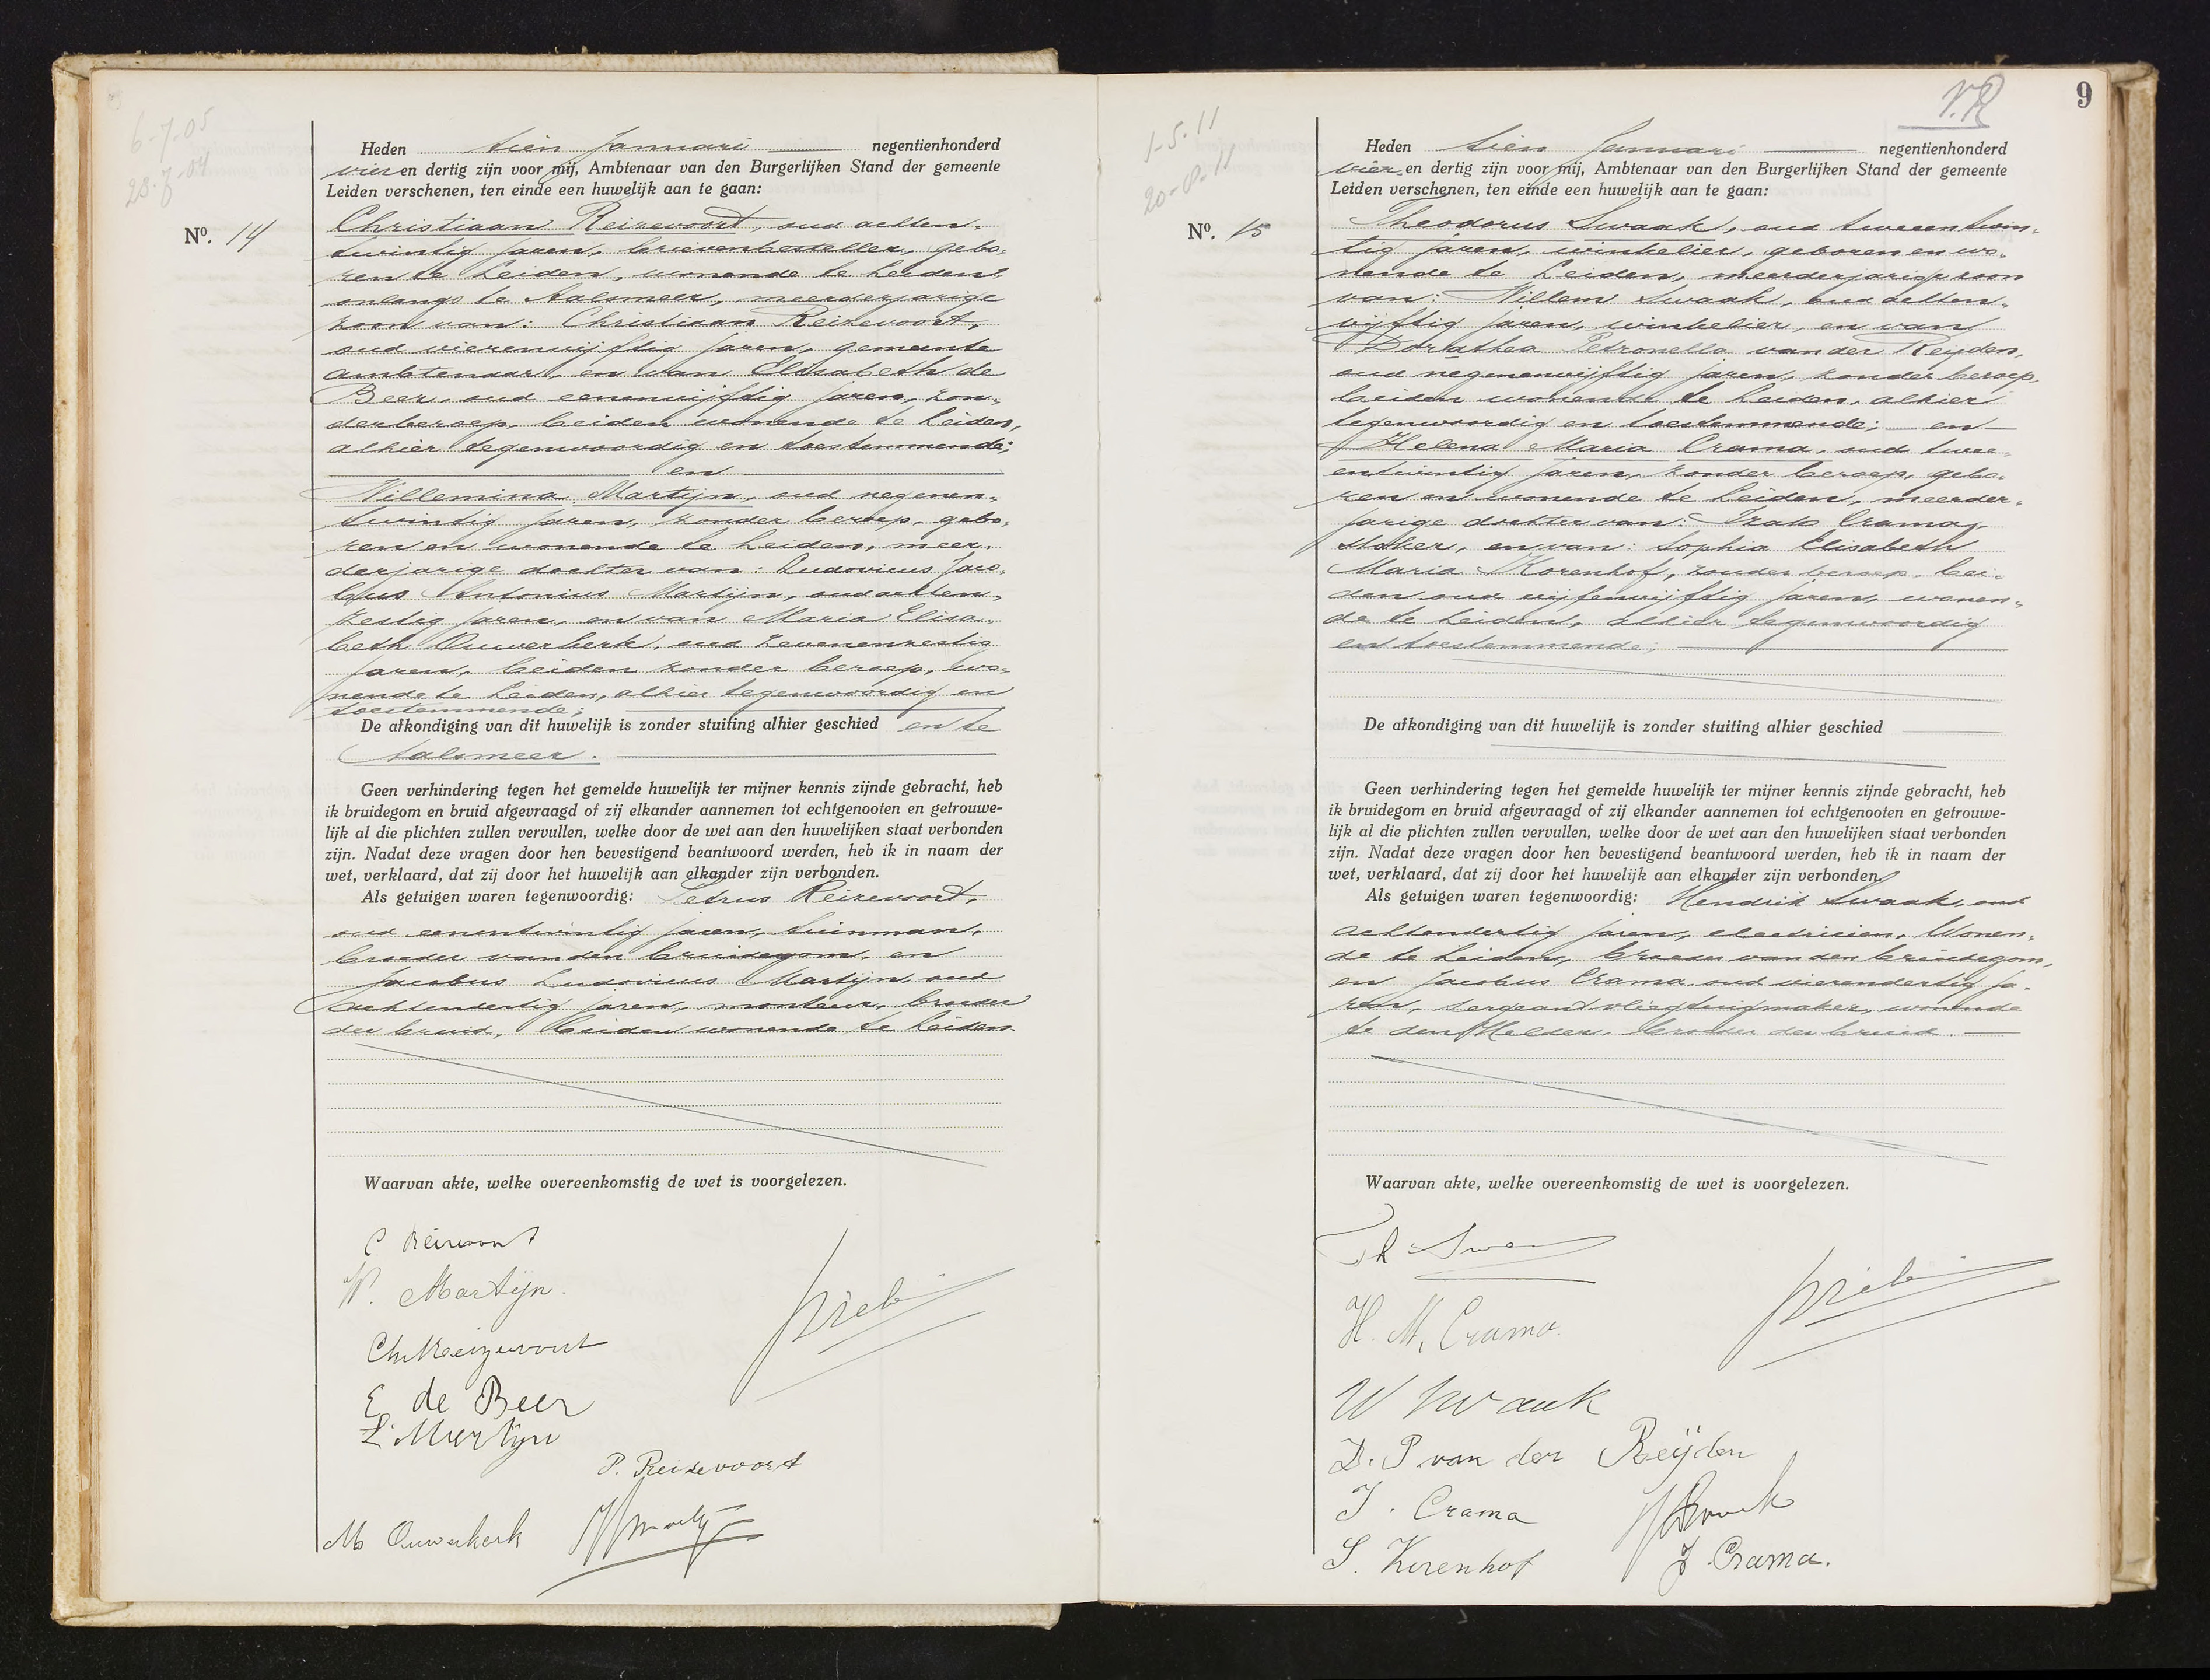 6-7-05
23-7-04
Nº. 14
Heden tien Januari negentienhonderd
vier en dertig zijn voor mij, Ambtenaar van den Burgerlijken Stand der gemeente
Leiden verschenen, ten einde een huwelijk aan te gaan:
Christiaan Reizevoort, oud achten-
twintig jaren, brievenbesteller, gebo-
ren te Leiden, wonende te Leiden,
onlangs te Aalsmeer, meerderjarige
zoon van: Christiaan Reizevoort,
oud vierenvijftig jaren, gemeente
ambtenaar, en van Elisabeth de
Beer, oud eenenvijftig jaren, zon-
der beroep, beiden wonende te Leiden,
alhier tegenwoordig en toestemmende;
en
Willemina Martijn, oud negenen-
twintig jaren, zonder beroep, gebo-
ren en wonende te Leiden, meer-
derjarige dochter van: Ludovicus Jaco-
bus Antonius Martijn, oud achten-
zestig jaren, en van Maria Elisa-
beth Ouwerkerk, oud zevenenzestig
jaren, beiden zonder beroep, wo-
nende te Leiden, alhier tegenwoordig en
toestemmende;
De afkondiging van dit huwelijk is zonder stuiting alhier geschied en te
Aalsmeer.
Geen verhindering tegen het gemelde huwelijk ter mijner kennis zijnde gebracht, heb
ik bruidegom en bruid afgevraagd of zij elkander aannemen tot echtgenooten en getrouwe-
lijk al die plichten zullen vervullen, welke door de wet aan den huwelijken staat verbonden
zijn. Nadat deze vragen door hen bevestigend beantwoord werden, heb ik in naam der
wet, verklaard, dat zij door het huwelijk aan elkander zijn verbonden.
Als getuigen waren tegenwoordig: Petrus Reizevoort,
oud eenentwintig jaren, tuinman,
broeder van den bruidegom, en
Jacobus Ludovicus Martijn, oud
achtendertig jaren, monteur, broeder
der bruid, beiden wonende te Leiden.
Waarvan akte, welke overeenkomstig de wet is voorgelezen.
C Reizevoort
W. Martijn.
Chr Reizevoort
E de Beer
L Martijn
P. Reizevoort
M Ouwerkerk
9
1-5-11
Nº. 15
Heden tien Januari negentienhonderd
vier en dertig zijn voor mij, Ambtenaar van den Burgerlijken Stand der gemeente
Leiden verschenen, ten einde een huwelijk aan te gaan:
Theodorus Swaak, oud tweeentwin-
tig jaren, winkelier, geboren en wo-
nende te Leiden, meerderjarige zoon
van: Willem Swaak, oud achten-
vijftig jaren, winkelier, en van
Dorathea Petronella van der Reyden,
oud negenenvijftig jaren, zonder beroep,
beiden wonende te Leiden, alhier
tegenwoordig en toestemmende; en
Helena Maria Crama, oud twee-
entwintig jaren, zonder beroep, gebo-
ren en wonende te Leiden, meerder-
jarige dochter van: Izak Crama,
stoker, en van: Sophia Elisabeth
Maria Korenhof, zonder beroep, bei-
den oud vijfenvijftig jaren, wonen-
de te Leiden, alhier tegenwoordig
en toestemmende;
De afkondiging van dit huwelijk is zonder stuiting alhier geschied
Geen verhindering tegen het gemelde huwelijk ter mijner kennis zijnde gebracht, heb
ik bruidegom en bruid afgevraagd of zij elkander aannemen tot echtgenooten en getrouwe-
lijk al die plichten zullen vervullen, welke door de wet aan den huwelijken staat verbonden
zijn. Nadat deze vragen door hen bevestigend beantwoord werden, heb ik in naam der
wet, verklaard, dat zij door het huwelijk aan elkander zijn verbonden.
Als getuigen waren tegenwoordig: Hendrik Swaak, oud
achtendertig jaren, electricien, wonen-
de te Leiden, broeder van den bruidegom,
en Jacobus Crama, oud vierendertig ja-
ren, sergeant vliegtuigmaker, wonende
te den Helder, broeder der bruid.
Waarvan akte, welke overeenkomstig de wet is voorgelezen.
Th Swaak
H. M. Crama.
W Swaak
D. P van der Reijden
I. Crama
H Swaak
S. Korenhof
J. Crama.